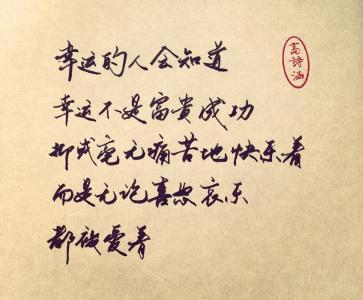 幸运的人会知道
幸运不是富貴成功
抑或毫无痛苦地快乐着
而是无论喜怒哀乐
都被愛着
高詩涵